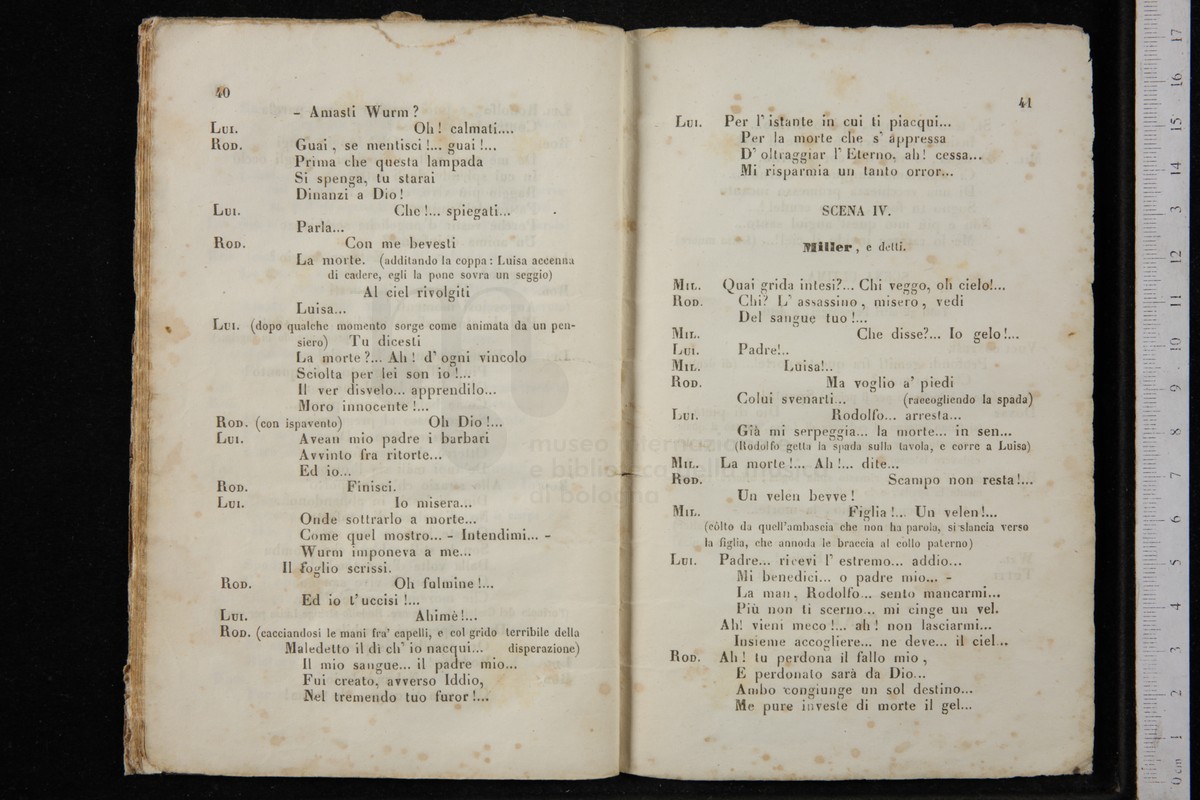 40
- Amasti Wurm ?
LUI. Oh ! calmati....
ROD. Guai , se mentisci !... guai !...
Prima che questa lampada
Si spenga, tu starai
Dinanzi a Dio !
LUI. Che !... spiegati...
Parla...
ROD. Con me bevesti
La morte. (additando la coppa : Luisa accenna
di cadere, egli la pone sovra un seggio)
Al ciel rivolgiti
Luisa...
LUI. (dopo qualche momento sorge come animata da un pen-
siero) Tu dicesti
La morte ?... Ah ! d' ogni vincolo
Sciolta per lei son io !...
Il ver disvelo... apprendilo...
Moro innocente !...
ROD. (con ispavento) Oh Dio !...
LUI. Avean mio padre i barbari
Avvinto fra ritorte...
Ed io...
ROD. Finisci.
LUI. Io misera...
Onde sottrarlo a morte...
Come quel mostro... - Intendimi... -
Wurm imponeva a me...
Il foglio scrissi.
ROD. Oh fulmine !...
Ed io t' uccisi !...
LUI. Ahimè !...
ROD. (cacciandosi le mani fra' capelli, e col grido terribile della
Maledetto il dì ch' io nacqui... disperazione)
Il mio sangue... il padre mio...
Fui creato, avverso Iddio,
Nel tremendo tuo furor !...
41
LUI. Per l' istante in cui ti piacqui...
Per la morte che s' appressa
D' oltraggiar l' Eterno, ah ! cessa...
Mi risparmia un tanto orror...
SCENA IV.
Miller , e detti.
MIL. Quai grida intesi?... Chi veggo, oh cielo!...
ROD. Chi? L' assassino , misero , vedi
Del sangue tuo !...
MIL. Che disse?... Io gelo !...
LUI. Padre!..
MIL. Luisa!..
ROD. Ma voglio a' piedi
Colui svenarti... (raccogliendo la spada)
LUI. Rodolfo... arresta...
Già mi serpeggia... la morte... in sen...
(Rodolfo getta la spada sulla tavola, e corre a Luisa)
MIL. La morte !... Ah !... dite...
ROD. Scampo non resta !...
Un velen bevve !
MIL. Figlia !... Un velen !...
(còlto da quell'ambascia che non ha parola, si slancia verso
la figlia, che annoda le braccia al collo paterno)
LUI. Padre... ricevi l' estremo... addio...
Mi benedici... o padre mio... -
La man , Rodolfo... sento mancarmi...
Più non ti scerno... mi cinge un vel.
Ah! vieni meco !... ah ! non lasciarmi...
Insieme accogliere... ne deve... il ciel...
ROD. Ah ! tu perdona il fallo mio ,
E perdonato sarà da Dio...
Ambo congiunge un sol destino...
Me pure investe di morte il gel...
museo internazionale
e biblioteca della musica
di bologna
0 cm 1 2 3 4 5 6 7 8 9 10 11 12 13 14 15 16 17